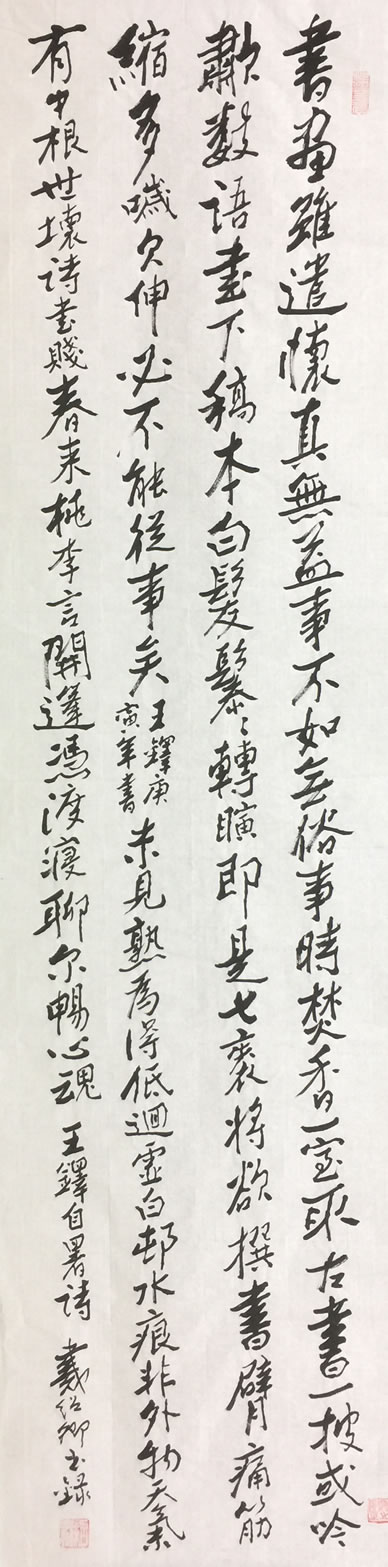 書畫雖遣懷真無益事不如無俗事時焚香一室取古書一披或吟
歗數語書下稿本白髮鬖〻轉瞚即是七袠将欲撰書臂痛筋
縮多嚱欠伸必不能從事矣王鐸庚寅年書未見熟為得低迴虛白邨水痕非外物天氣
有中根世壞詩書賤春来桃李言開蓬憑渡寢聊尔暢心魂王鐸自署詩戴紹卿书錄